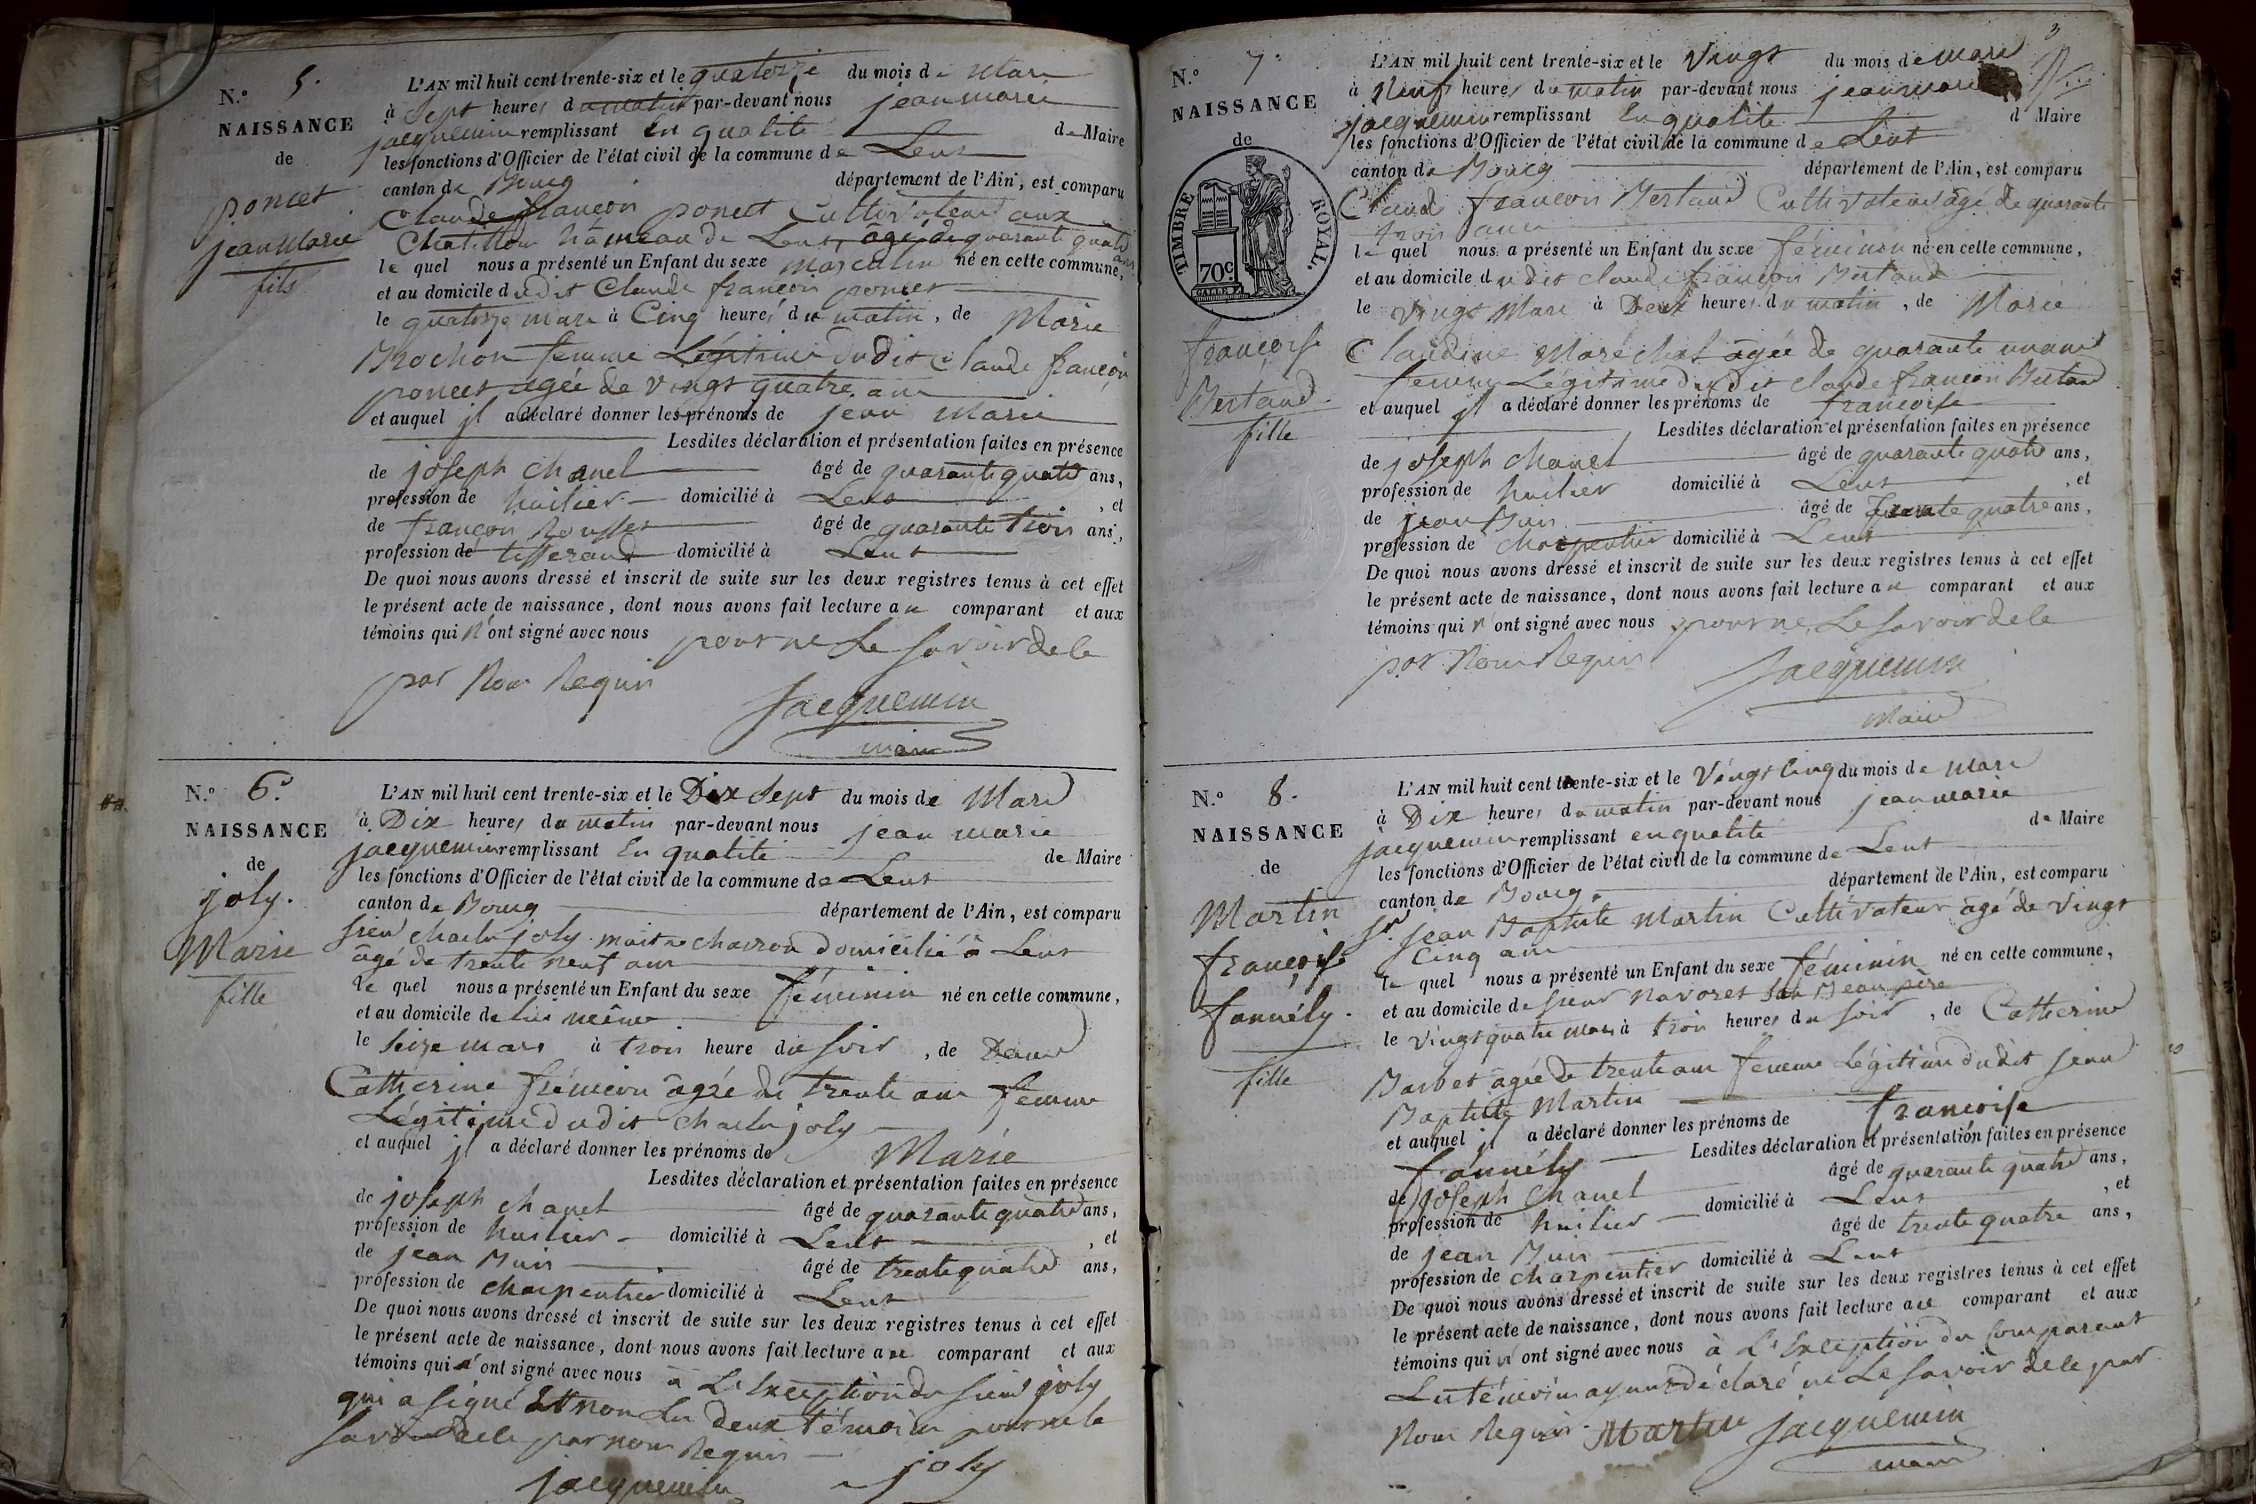 N.º 5.
NAISSANCE
de
poncet
jean Marie
fils
L'AN mil huit cent trente-six et le quatorze du mois de Mars
à Sept heures du matin par-devant nous jean marie
jacquemin remplissant En qualité de Maire
les fonctions d'Officier de l'état civil de la commune de Lent
canton de Bourg département de l'Ain, est comparu
Claude françois poncet Cultivateur aux
Chatillon hameau de Lent, âgé de quarante quatre ans
le quel nous a présenté un Enfant du sexe masculin né en cette commune,
et au domicile dudit Claude françois poncet
le quatorze mars à Cinq heures du matin, de Marie
Brochon femme Légitime dudit Claude françois
poncet agée de vingt quatre ans
et auquel jl a déclaré donner les prénoms de jean Marie
Lesdites déclaration et présentation faites en présence
de joseph chanel âgé de quarante quatre ans,
profession de huilier domicilié à Lent, et
de françois Rousset âgé de quarante trois ans,
profession de tisserand domicilié à Lent
De quoi nous avons dressé et inscrit de suite sur les deux registres tenus à cet effet
le présent acte de naissance, dont nous avons fait lecture au comparant et aux
témoins qui n'ont signé avec nous pour ne Le savoir de le
par Nous Requis
Jacquemin
maire
N.º 6.
NAISSANCE
de
joly.
Marie
fille
L'AN mil huit cent trente-six et le Dix Sept du mois de Mars
à Dix heures du matin par-devant nous jean marie
jacquemin remplissant En qualité de Maire
les fonctions d'Officier de l'état civil de la commune de Lent
canton de Bourg département de l'Ain, est comparu
sieur charles joly maitre charron domicilié à Lent
âgé de trente neuf ans
le quel nous a présenté un Enfant du sexe féminin né en cette commune,
et au domicile de lui même
le Seize mars à trois heure du soir, de Dame
Catherine frémion âgée de trente ans femme
Légitime dudit charles joly
et auquel jl a déclaré donner les prénoms de Marie
Lesdites déclaration et présentation faites en présence
de joseph chanel âgé de quarante quatre ans,
profession de huilier domicilié à Lent, et
de jean Buis âgé de trente quatre ans,
profession de charpentier domicilié à Lent
De quoi nous avons dressé et inscrit de suite sur les deux registres tenus à cet effet
le présent acte de naissance, dont nous avons fait lecture au comparant et aux
témoins qui n'ont signé avec nous à L'Exception du sieur joly
qui a signé Et non Les deux témoins pour ne le
savoir de le par nous Requis
jacquemin joly
3
N.º 7.
NAISSANCE
de
TIMBRE ROYAL.
70c.
françoise
Bertaud.
fille
L'AN mil huit cent trente-six et le Vingt du mois de mars
à Neuf heures du matin par-devant nous jean marie
jacquemin remplissant En qualité d Maire
les fonctions d'Officier de l'état civil de la commune de Lent
canton de Bourg département de l'Ain, est comparu
Claude françois Bertaud Cultivateur âgé de quarante
trois ans
le quel nous a présenté un Enfant du sexe féminin né en cette commune,
et au domicile dudit claude françois Bertaud
le vingt Mars à Deux heures du matin, de Marie
Claudine Maréchal âgée de quarante un ans
femme Légitime dudit claude françois Bertaud
et auquel jl a déclaré donner les prénoms de françoise
Lesdites déclaration et présentation faites en présence
de joseph chanel âgé de quarante quatre ans,
profession de huilier domicilié à Lent, et
de jean Buis âgé de trente quatre ans,
profession de charpentier domicilié à Lent
De quoi nous avons dressé et inscrit de suite sur les deux registres tenus à cet effet
le présent acte de naissance, dont nous avons fait lecture au comparant et aux
témoins qui n'ont signé avec nous pour ne Le savoir de le
par Nous Requis
Jacquemin
Maire
N.º 8.
NAISSANCE
de
Martin
françoise
fannély.
fille
L'AN mil huit cent trente-six et le Vingt Cinq du mois de Mars
à Dix heures du matin par-devant nous jean marie
jacquemin remplissant en qualité de Maire
les fonctions d'Officier de l'état civil de la commune de Lent
canton de Bourg. département de l'Ain, est comparu
Sr. Jean Baptiste Martin Cultivateur âgé de Vingt
Cinq ans
le quel nous a présenté un Enfant du sexe féminin né en cette commune,
et au domicile de sieur Navoret son Beau père
le vingt quatre mars à trois heures du soir, de Catherine
Barbet agée de trente ans femme Légitime dudit Jean
Baptiste Martin
et auquel jl a déclaré donner les prénoms de françoise
fannély Lesdites déclaration et présentation faites en présence
de joseph chanel âgé de quarante quatre ans,
profession de huilier domicilié à Lent, et
de jean Buis âgé de trente quatre ans,
profession de charpentier domicilié à Lent
De quoi nous avons dressé et inscrit de suite sur les deux registres tenus à cet effet
le présent acte de naissance, dont nous avons fait lecture au comparant et aux
témoins qui n'ont signé avec nous à L'Exception du Comparant
Les témoins ayant déclaré ne Le savoir de le par
Nous Requis Martin jacquemin
maire